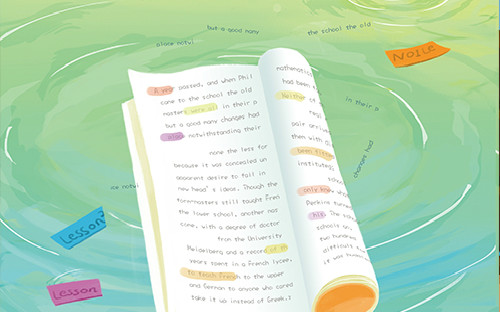 but a good many
the school the old
place notwi
Noile
A year passed, and when Phil
came to the school the old
masters were all in their p
but a good many changes had
place notwithstanding their
none the less for
because it was concealed un
apparent desire to fall in
new head's ideas. Though the
formmasters still taught Fren
the lower school, another mas
come, with a degree of doctor
from the University
Heidelberg and a record of th
years spent in a French lycee,
to teach French to the upper
and German to anyone who cared
take it up instead of Greek.I
mathematic
had been e
Neither of
regi
pair arrive
them with d
been
institute
schoo
only how
Perkins
his. The
schools an
two hundred
difficult
it was
in their p
changes had
me notwi
Lesson
Lesson